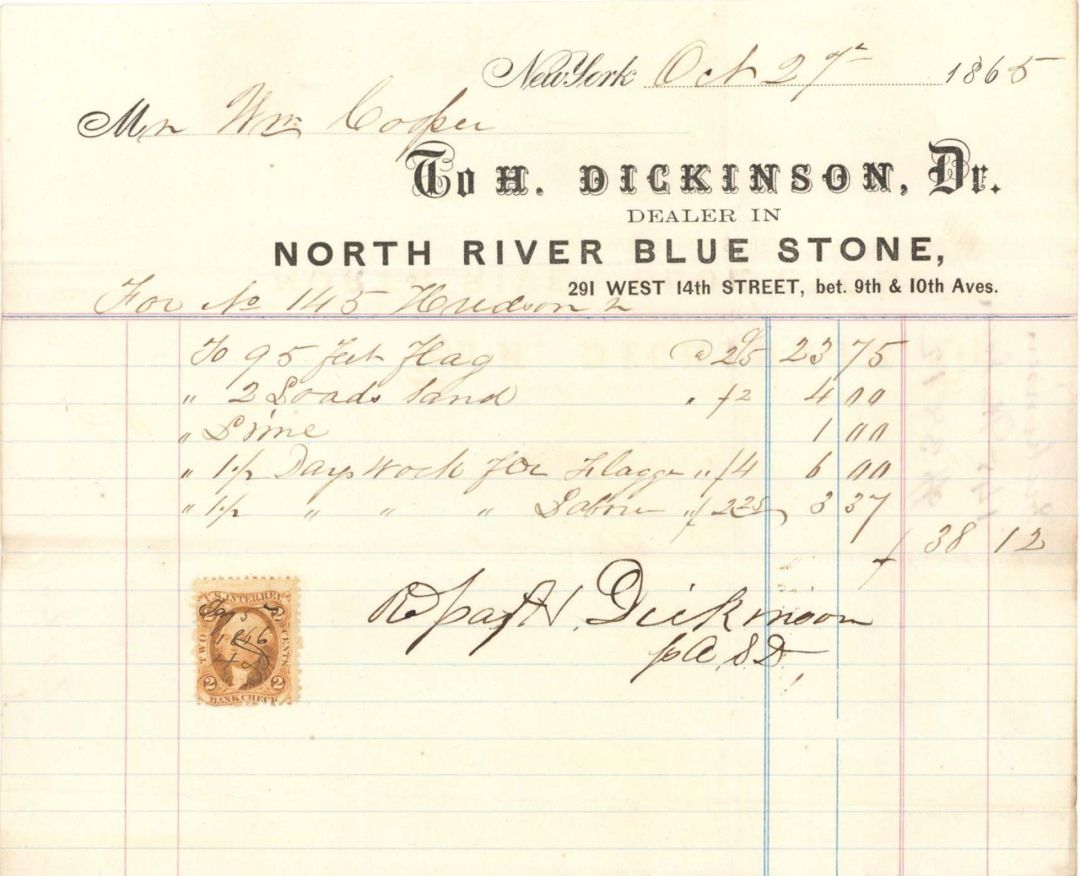 New York Oct 27th 1865
Mr Wm Cooper
To H. DICKINSON, Dr.
DEALER IN
NORTH RIVER BLUE STONE,
291 WEST 14th STREET, bet. 9th & 10th Aves.
For No 145 Hudson
To 95 feet Flag @ 25c 23 75
" 2 Loads Sand " $2 4 00
" Lime 1 00
" 1 1/2 Days Work for Flagger " $4 6 00
" 1 1/2 " " " Labor " $2.25 3 37
$ 38 12
H. Dickinson
U.S. INTER. REV.
5
1866
TWO CENTS
2 2
BANK CHECK